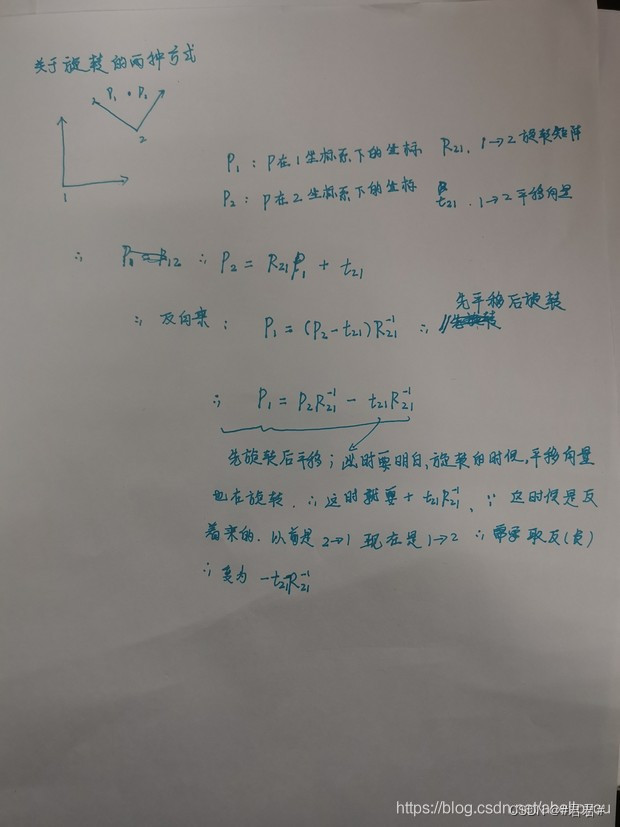 关于旋转的两种方式
P₁ P₂
2
1
P₁ : P在1坐标系下的坐标 R₂₁. 1→2旋转矩阵
P₂ : P在2坐标系下的坐标 t₂₁. 1→2平移向量
∴ ∴ P₂ = R₂₁P₁ + t₂₁
∴ 反向来: P₁ = (P₂-t₂₁)R₂₁⁻¹ ∴ 先平移后旋转
∴ P₁ = P₂R₂₁⁻¹ - t₂₁R₂₁⁻¹
先旋转后平移; 此时要明白,旋转的时候,平移向量
也在旋转. ∴ 这时就要 + t₂₁R₂₁⁻¹, ∵ 这时候是反
着来的. 以前是2→1 现在是1→2 ∴ 需要取反(负)
∴ 变为 -t₂₁R₂₁⁻¹
https://blog.csdn.net/
CSDN @#君君#